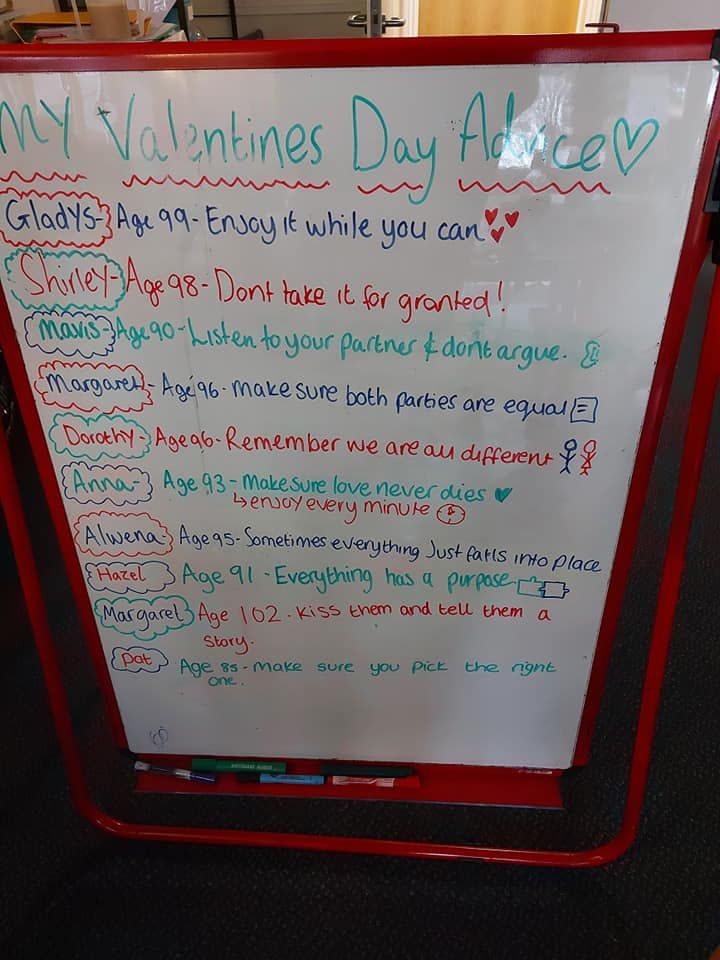 My Valentines Day Advice
Gladys- Age 99- Enjoy it while you can
Shirley- Age 98- Dont take it for granted!
Mavis- Age 90- Listen to your partner & dont argue.
Margaret- Age 96- make sure both parties are equal
Dorothy- Age 96- Remember we are all different
Anna- Age 93- Make sure love never dies
↳ enjoy every minute
Alwena- Age 95- Sometimes everything Just falls into place
Hazel Age 91 - Everything has a purpose
Margaret Age 102. Kiss them and tell them a
story.
Pat Age 85- make sure you pick the right
one.